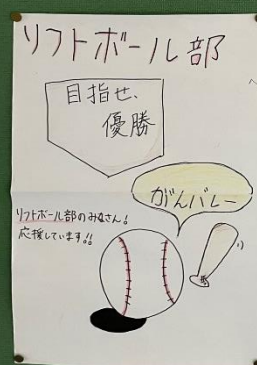 ソフトボール部
目指せ、
優勝
がんバレー
ソフトボール部のみなさん!
応援しています!!